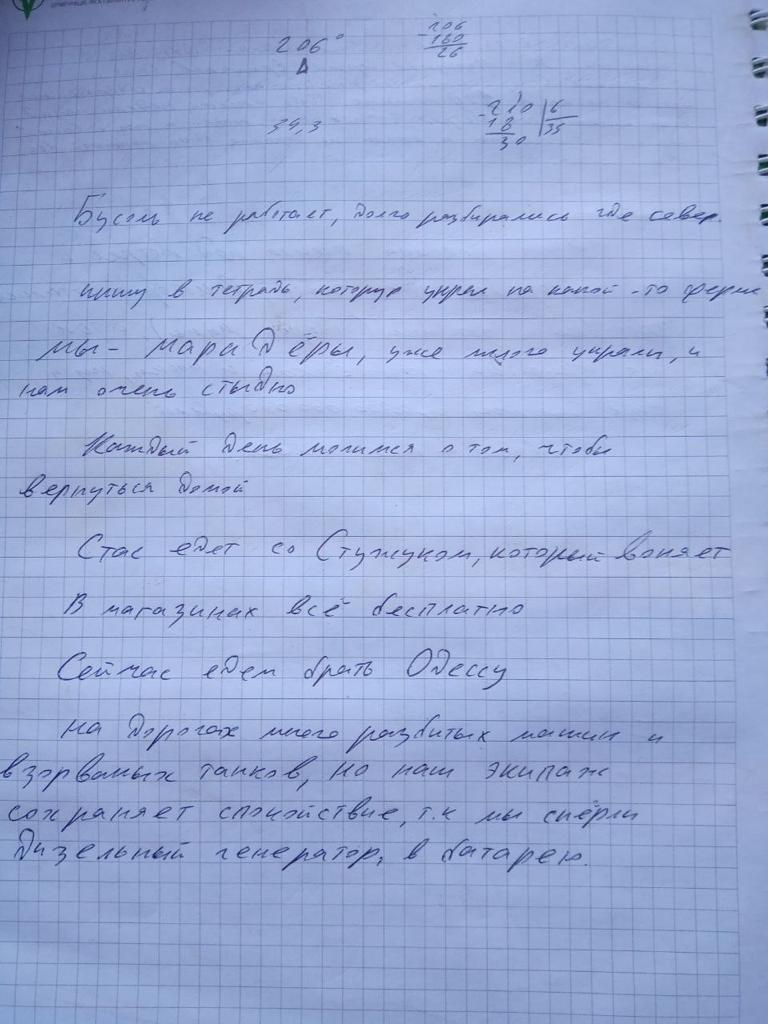 206°
206
- 180
26
39,3
- 210 | 6
18 35
30
Бусоль не работает, долго разбирались где север.
пишу в тетрадь, которую украл на какой-то ферме
мы - марадёры, уже много украли, и
нам очень стыдно
Каждый день молимся о том, чтобы
вернуться домой
Стас едет со Стужуком, который воняет
В магазинах всё бесплатно
Сейчас едем брать Одессу
на дорогах много разбитых машин и
взорваных танков, но наш экипаж
сохраняет спокойствие, т.к мы спёрли
дизельный генератор, в батарею.